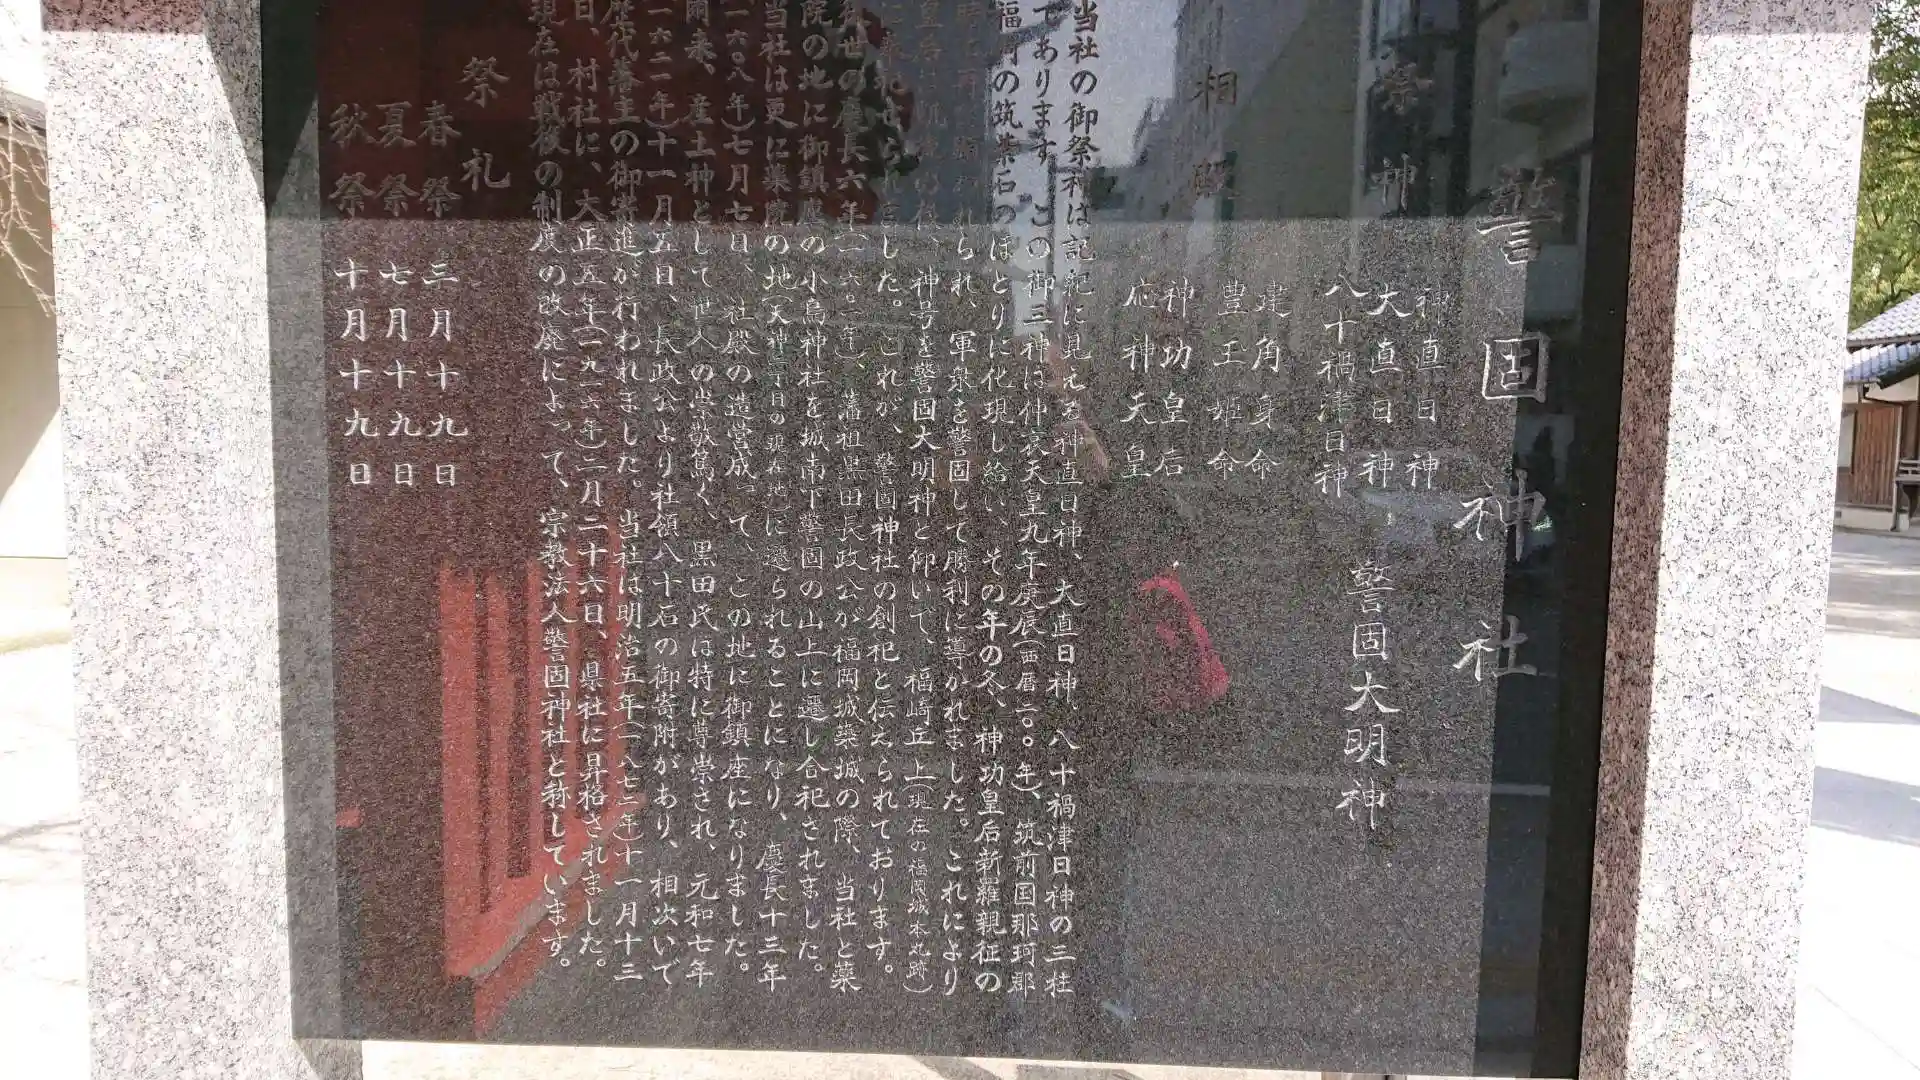 警固神社
祭神
神直日神
大直日神 警固大明神
八十禍津日神
相殿
建角身命
豊玉姫命
神功皇后
応神天皇
当社の御祭神は記紀に見える神直日神、大直日神、八十禍津日神の三柱
であります。この御三神は仲哀天皇九年庚辰(西暦二〇〇年)、筑前国那珂郡
福岡の筑紫石のほとりに化現し給い、その年の冬、神功皇后新羅親征の
れられ、軍衆を警固して勝利に導かれました。これにより
神号を警固大明神と仰いで、福崎丘上(現在の福岡城本丸跡)
した。これが、警固神社の創祀と伝えられております。
世の慶長六年(一六〇一年)、藩祖黒田長政公が福岡城築城の際、当社と薬
院の地に御鎮座の小烏神社を城南下警固の山上に遷し合祀されました。
当社は更に薬院の地(天神二丁目の現在地)に遷られることになり、慶長十三年
(一六〇八年)七月七日、社殿の造営成って、この地に御鎮座になりました。
爾来、産土神として世人の崇敬篤く、黒田氏は特に尊崇され、元和七年
(一六二一年)十一月五日、長政公より社領八十石の御寄附があり、相次いで
歴代藩主の御寄進が行われました。当社は明治五年(一八七二年)十一月十三
日、村社に、大正五年(一九一六年)二月二十六日、県社に昇格されました。
現在は戦後の制度の改廃によって、宗教法人警固神社と称しています。
祭礼
春祭 三月十九日
夏祭 七月十九日
秋祭 十月十九日